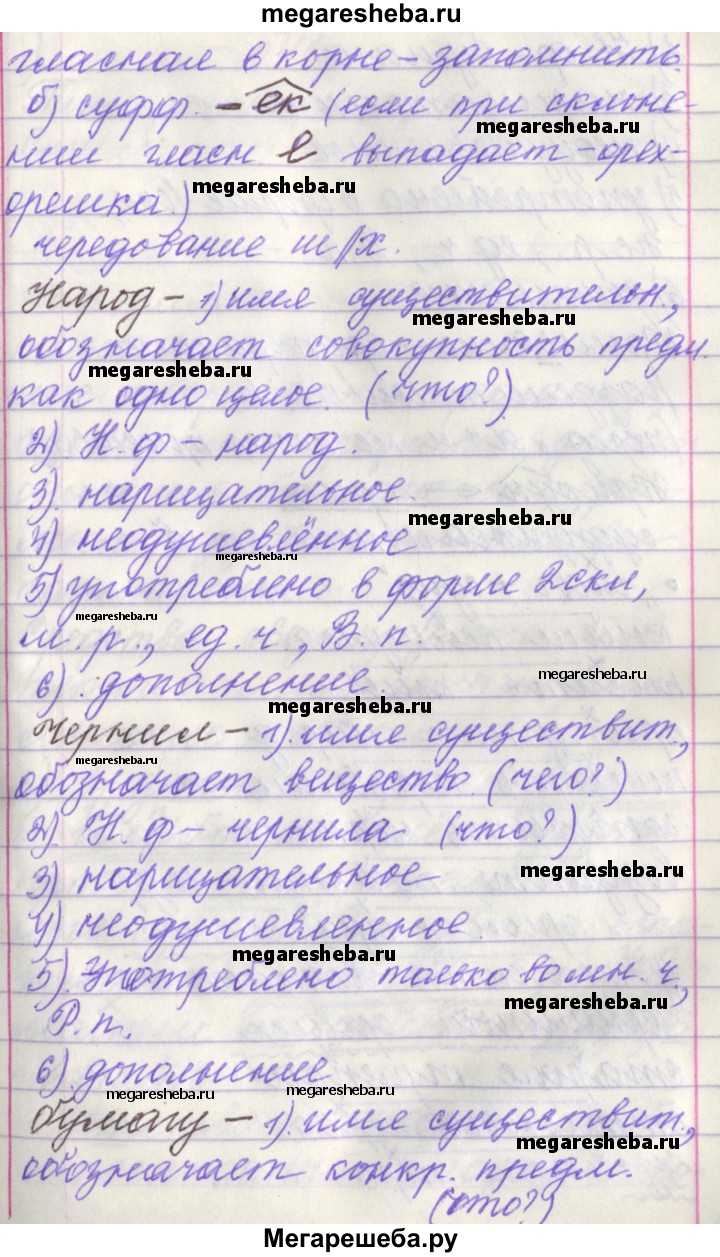 megaresheba.ru
гласная в корне – запомнить.
б) суфф. -ек (если при склоне-
megaresheba.ru
нии гласн е выпадает – орех-
megaresheba.ru
орешка.)
чередование ш/х.
Народ – 1) имя существительн.,
megaresheba.ru
обозначает совокупность предм.
megaresheba.ru
как одно целое. (что?)
2) Н.ф – народ.
3) нарицательное.
megaresheba.ru
4) неодушевлённое
megaresheba.ru
5) употреблено в форме 2 скл,
megaresheba.ru
м.р., ед.ч, В.п.
6) дополнение.
megaresheba.ru
megaresheba.ru
Чернил – 1) имя существит,
megaresheba.ru
обозначает вещество (чего?)
2) Н.ф – чернила (что?)
3) нарицательное
megaresheba.ru
4) неодушевленное.
megaresheba.ru
5) Употреблено только во мн.ч,
megaresheba.ru
Р.п.
6) дополнение
megaresheba.ru
megaresheba.ru
бумагу – 1) имя существит.,
megaresheba.ru
обозначает конкр. предм.
(что?)
Мегарешеба.ру